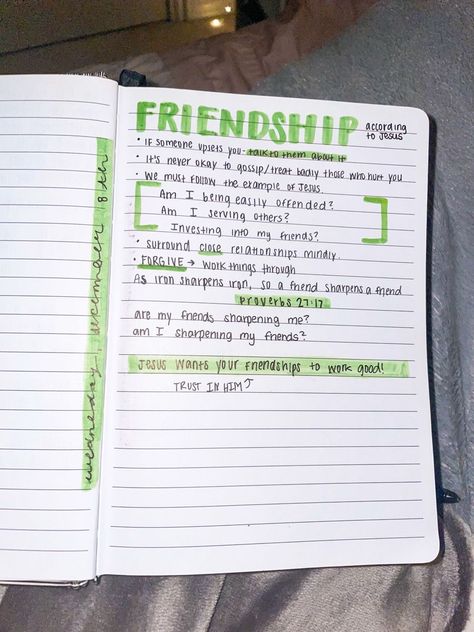 wednesday, december 8th
FRIENDSHIP according to Jesus
• If someone upsets you - talk to them about it
• It's never okay to gossip/treat badly those who hurt you
• We must follow the example of Jesus.
Am I being easily offended?
Am I serving others?
Investing into my friends?
• surround close relationships mindly.
• FORGIVE → work things through
As iron sharpens iron, so a friend sharpens a friend
Proverbs 27:17
are my friends sharpening me?
am I sharpening my friends?
Jesus wants your friendships to work good!
TRUST IN HIM